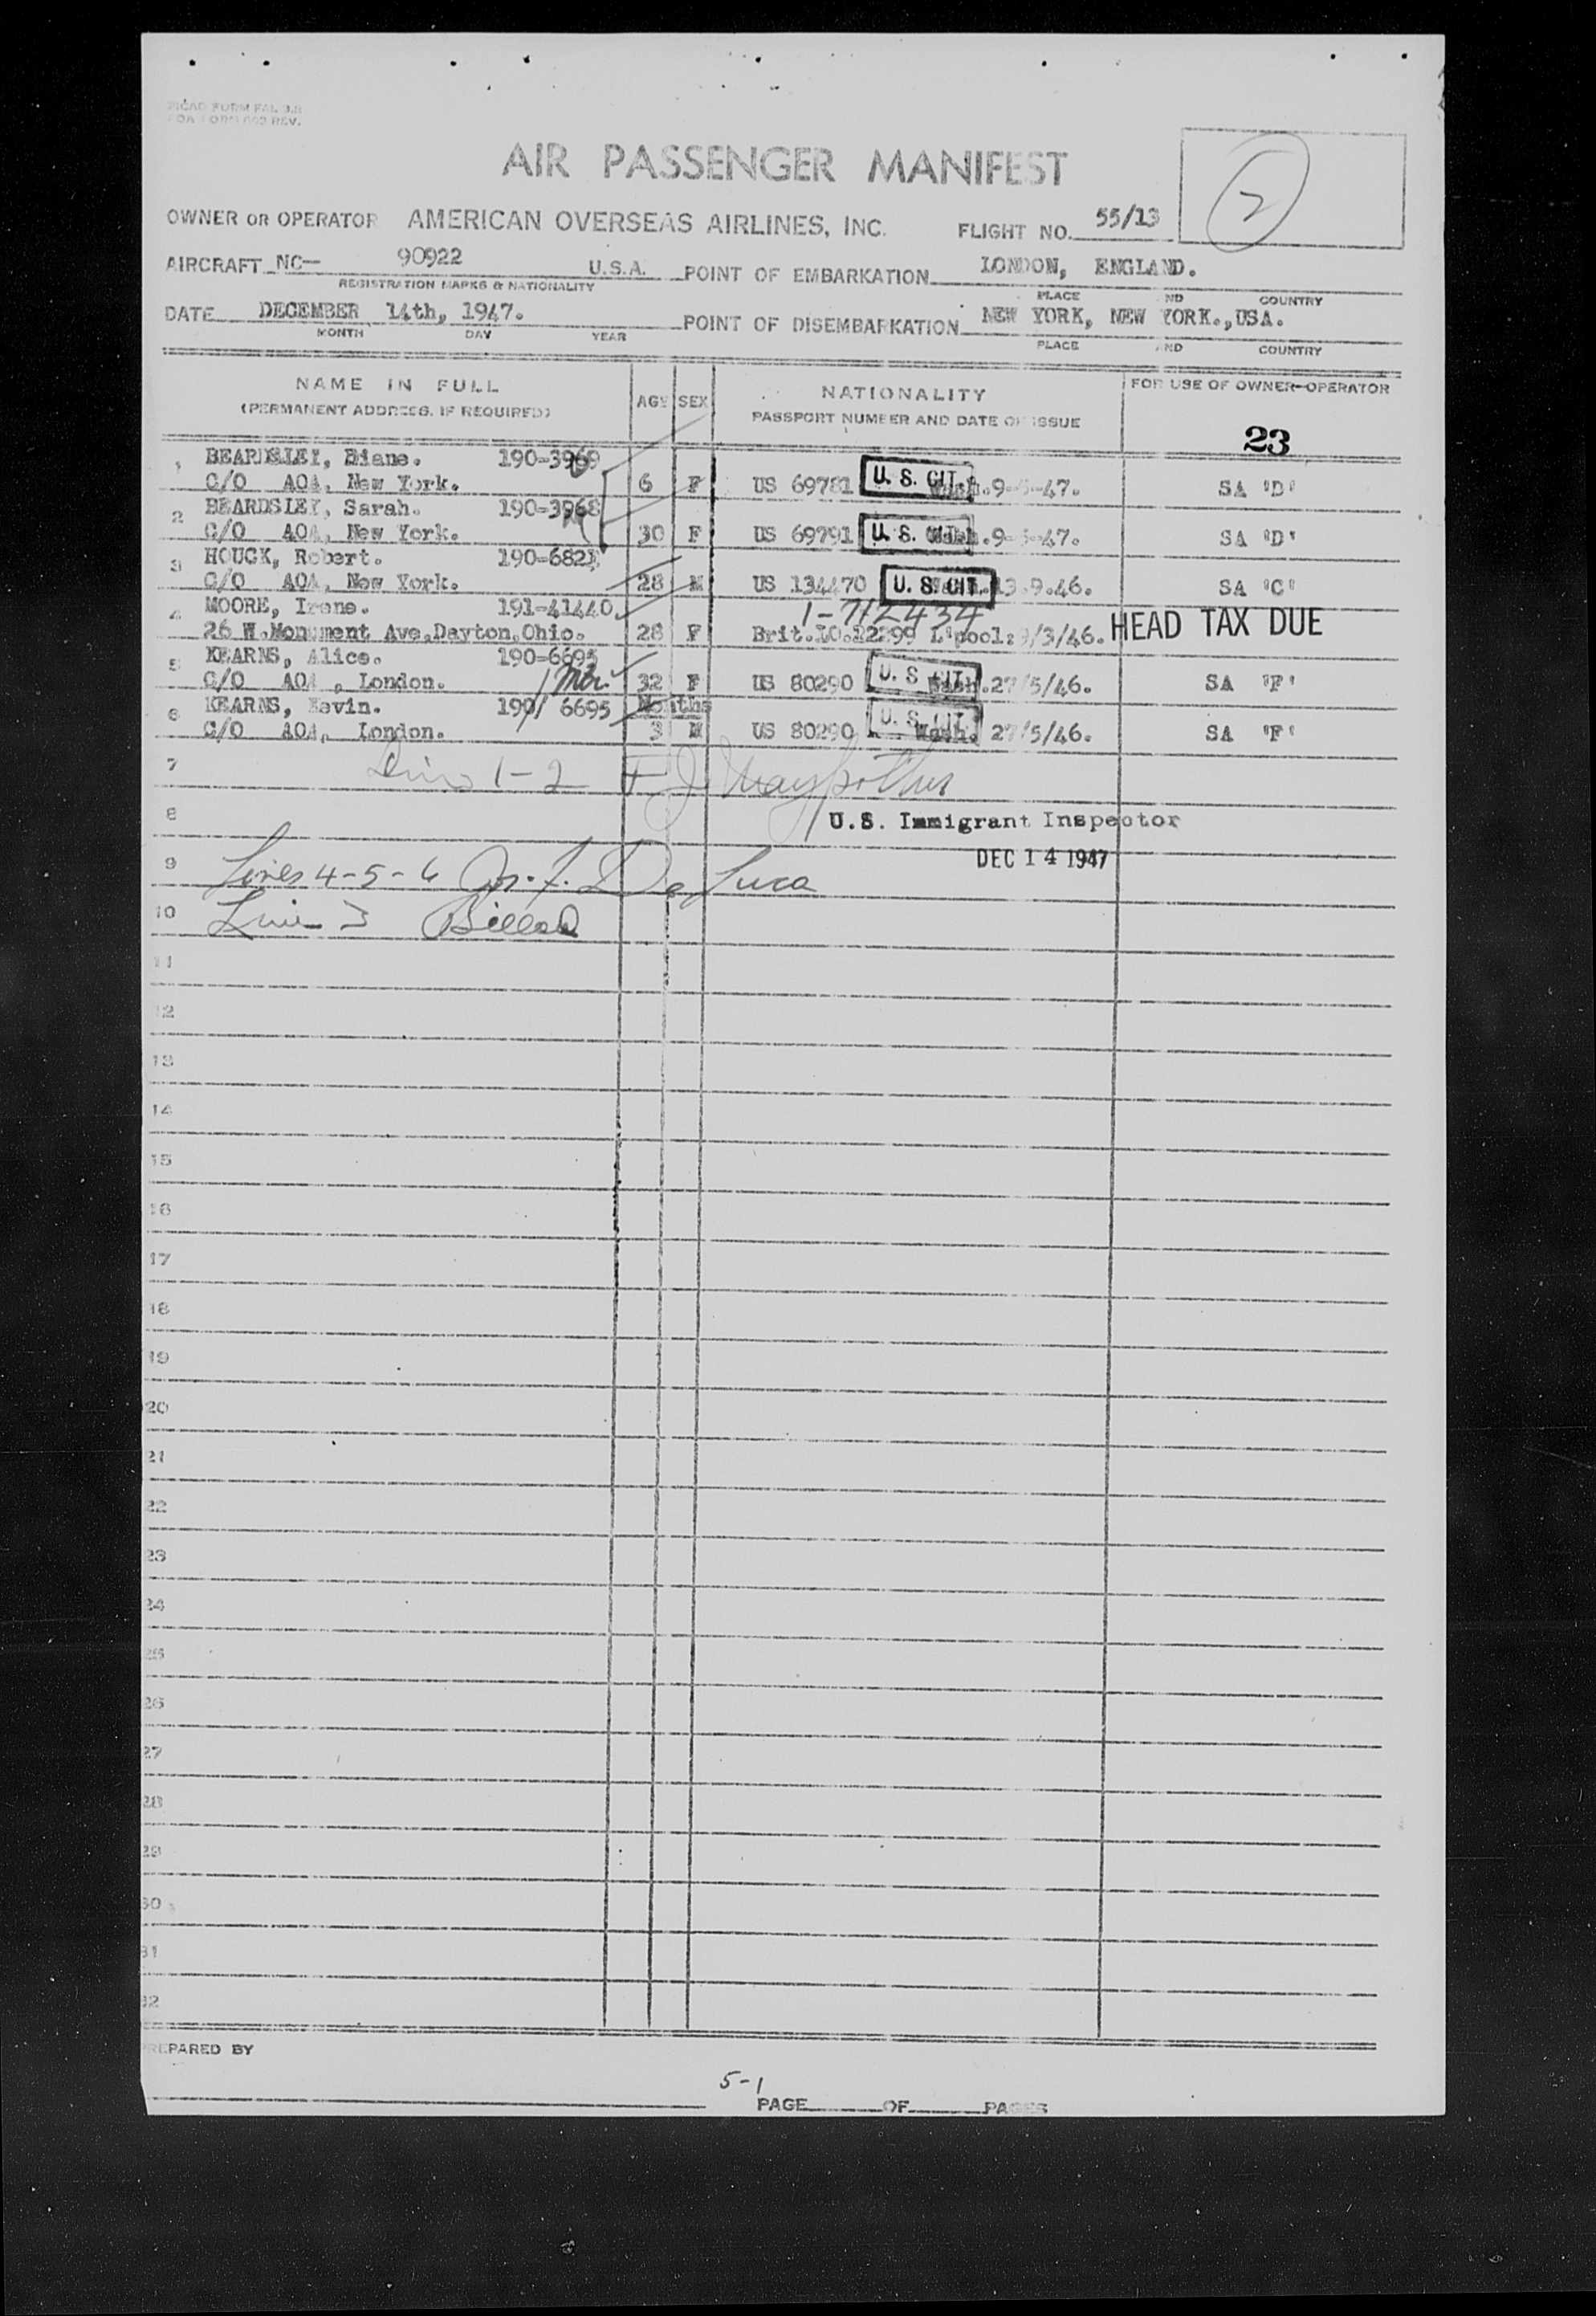 PICAO FORM FAL 3.B
AIR PASSENGER MANIFEST
2
OWNER OR OPERATOR AMERICAN OVERSEAS AIRLINES, INC. FLIGHT NO. 55/13
AIRCRAFT NC— 90922 U.S.A. POINT OF EMBARKATION LONDON, ENGLAND.
REGISTRATION MARKS & NATIONALITY PLACE AND COUNTRY
DATE DECEMBER 14th, 1947. POINT OF DISEMBARKATION NEW YORK, NEW YORK.,USA.
MONTH DAY YEAR PLACE AND COUNTRY
NAME IN FULL AGE SEX NATIONALITY FOR USE OF OWNER-OPERATOR
(PERMANENT ADDRESS, IF REQUIRED) PASSPORT NUMBER AND DATE OF ISSUE
23
1 BEARDSLEY, Diane. 190-3969
C/O AOA, New York. 6 F US 69781 U. S. CIT. Wash.9-5-47. SA "D"
2 BEARDSLEY, Sarah. 190-3968
C/O AOA, New York. 30 F US 69791 U. S. CIT. Wash.9-5-47. SA "D"
3 HOUCK, Robert. 190-6821
C/O AOA, New York. 28 M US 134470 U. S. CIT. 13.9.46. SA "C"
4 MOORE, Irene. 191-41440. 1-712434
26 W.Monument Ave,Dayton,Ohio. 28 F Brit.LO.12299 L'pool: 9/3/46. HEAD TAX DUE
5 KEARNS, Alice. 190-6695
C/O AOA , London. 32 F US 80290 U. S. CIT. Wash.27/5/46. SA "F"
6 KEARNS, Kevin. 190/ 6695 Months
C/O AOA, London. 3 M US 80290 U. S. CIT. Wash. 27/5/46. SA "F"
7 1-2
8 U.S. Immigrant Inspector
DEC 14 1947
9 Lines 4-5-6 De Luca
10 Line 3
11
12
13
14
15
16
17
18
19
20
21
22
23
24
25
26
27
28
29
30
31
32
PREPARED BY
5-1
PAGE OF PAGES